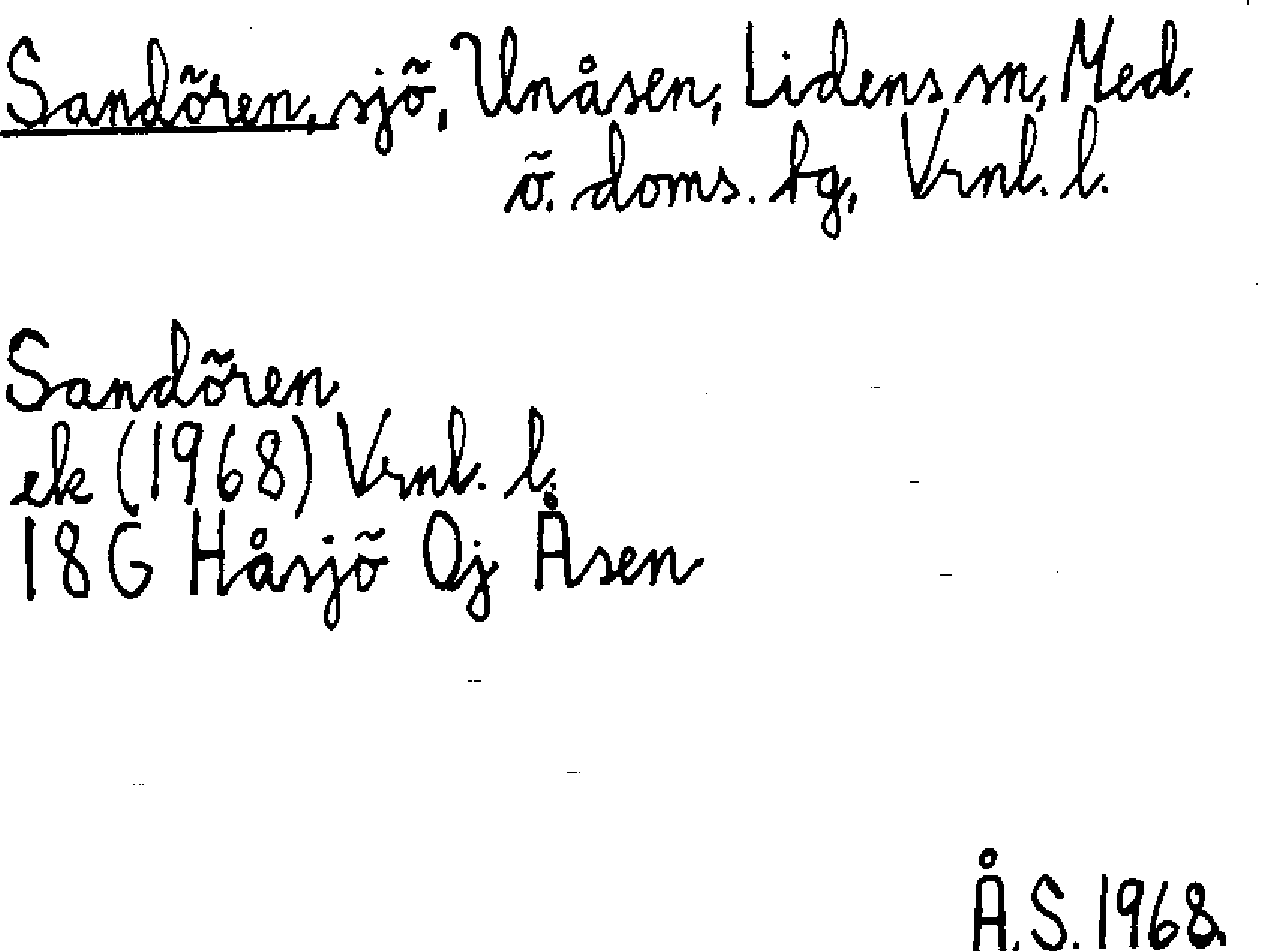 Sandõren, sjõ, Unåsen, Lidens sn, Med.
õ. doms. tg, Vrnl. l.
Sandõren
ek (1968) Vrnl. l.
18G Håsjõ Oj Åsen
Å.S. 1968.